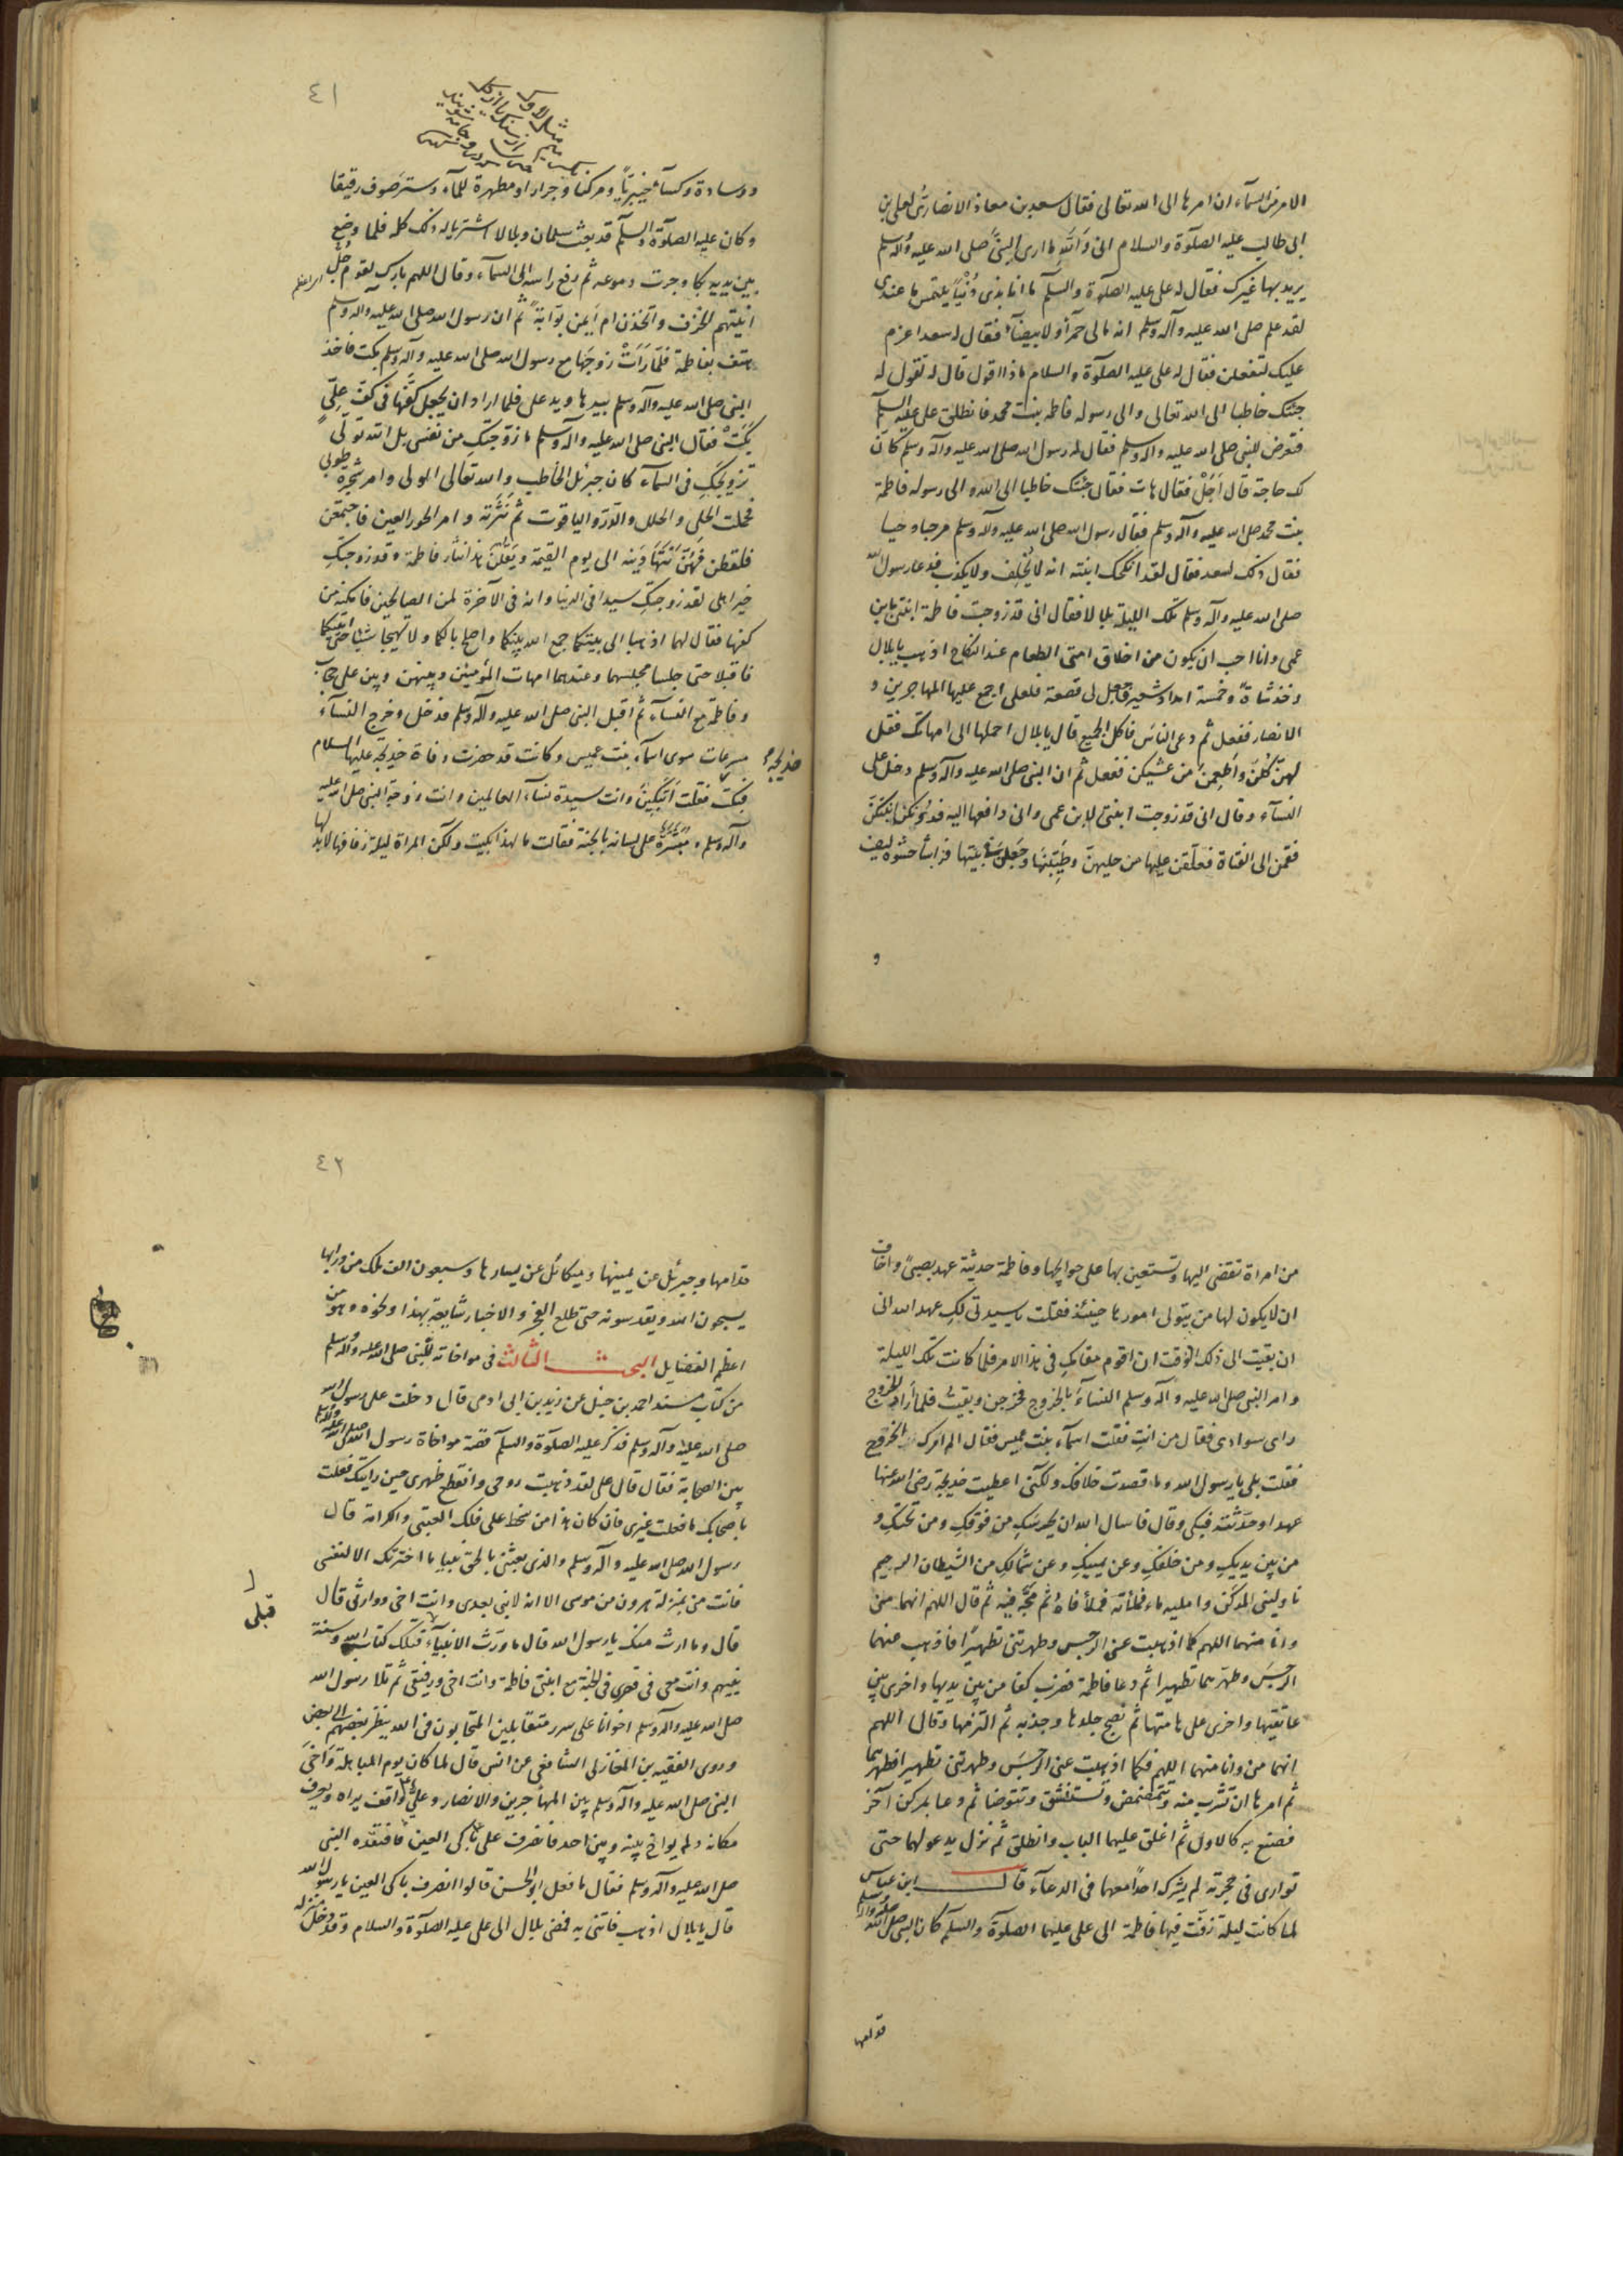 الامر من السمآء ان امرها الى الله تعالى فقال سعد بن معاذ الانصارى لعلى بن
ابى طالب عليه الصلوة والسلام انى والله ما ارى النبى صلى الله عليه وآله وسلم
يريد بها غيرك فقال له على عليه الصلوة والسلم ما انا بذى دنيا يلتمس ما عندى
لقد علم صلى الله عليه وآله وسلم انه مالى حمرآء ولا بيضآء فقال له سعد اعزم
عليك لتفعلن فقال له على عليه الصلوة والسلام ماذا اقول قال له تقول له
جئتك خاطبا الى الله تعالى والى رسوله فاطمه بنت محمد فانطلق على عليه السلم
فتعرض للنبى صلى الله عليه وآله وسلم فقال له رسول الله صلى الله عليه وآله وسلم كان
لك حاجة قال اجل فقال هات فقال جئتك خاطبا الى الله والى رسوله فاطمة
بنت محمد صلى الله عليه وآله وسلم فقال رسول الله صلى الله عليه وآله وسلم مرحبا وحبا
فقال ذلك لسعد فقال لقد انكحك ابنته انه لا يخلف ولا يكذب فدعا رسول الله
صلى الله عليه وآله وسلم تلك الليلة بلالا فقال انى قد زوجت فاطمة ابنتى بابن
عمى وانا احب ان يكون من اخلاق امتى الطعام عند النكاح اذهب يا بلال
وخذ شاة وخمسة امداد شعير فاجعل لى قصعة فلعلى اجمع عليها المهاجرين و
الانصار ففعل ثم دعى الناس فاكل الجميع قال يا بلال احملها الى امهاتك فقل
لهن كلن واطعمن من عشيكن ففعل ثم ان النبى صلى الله عليه وآله وسلم دخل على
النسآء وقال انى قد زوجت ابنتى لابن عمى وانى دافعها اليه فدونكن ابنتكن
فقمن الى الفتاة فعلقن عليها من حليهن وطيبنها وجعلن فى بيتها فراشا حشوه ليف
و
٤١
ووسادة وكسآء خيبريا ومركنا وجرارا ومطهرة للمآء وستر صوف رقيقا
وكان عليه الصلوة والسلم قد بعث سلمان وبلالا اشتريا له ذلك كله فلما وضع
بين يديه بكا وجرت دموعه ثم رفع راسه الى السمآء وقال اللهم بارك لقوم جل
انيتهم الخزف واتخذن ام ايمن بوابة ثم ان رسول الله صلى الله عليه وآله وسلم
هتف بفاطمة فلما رات زوجها مع رسول الله صلى الله عليه وآله وسلم بكت فاخذ
النبى صلى الله عليه وآله وسلم بيدها ويد على فلما اراد ان يجعل كفها فى كف على
بكت فقال النبى صلى الله عليه وآله وسلم ما زوجتك من نفسى بل الله تولى
تزويجك فى السمآء كان جبرئل الخاطب والله تعالى الولى وامر شجرة طوبى
فحملت الحلى والحلل والدر والياقوت ثم نثرته وامر الحور العين فاجتمعن
فلقطن فهن يتهادينه الى يوم القيمة ويقلن هذا نثار فاطمة وقد زوجتك
خير اهلى لقد زوجتك سيدا فى الدنيا وانه فى الآخرة لمن الصالحين فامكنه من
كفها فقال لهما اذهبا الى بيتكما جمع الله بينكما واصلح بالكما ولا تهيجا شيئا حتى اتيكما
فاقبلا حتى جلسا مجلسهما وعندهما امهات المؤمنين وبينهن وبين على حجاب
وفاطمة مع النسآء ثم اقبل النبى صلى الله عليه وآله وسلم فدخل وخرج النسآء
مسرعات سوى اسمآء بنت عميس وكانت قد حضرت وفاة خديجة عليها السلام
خديجة
فبكت فقلت اتبكين وانت سيدة نسآء العالمين وانت زوجة النبى صلى الله عليه
وآله وسلم ومبشرة على لسانه بالجنة فقالت ما لهذا بكيت ولكن المراة ليلة زفافها لابد لها
من امراة تفضى اليها وتستعين بها على حوايجها وفاطمة حديثة عهد بصبى واخاف
ان لا يكون لها من يتولى امورها حينئذ فقلت يا سيدتى لك عهد الله انى
ان بقيت الى ذلك الوقت ان اقوم مقامك فى هذا الامر فلما كانت تلك الليلة
وامر النبى صلى الله عليه وآله وسلم النسآء بالخروج فخرجن وبقيت فلما اراد الخروج
راى سوادى فقال من انت فقلت اسمآء بنت عميس فقال الم امرك الخروج
فقلت بلى يا رسول الله وما قصدت خلافك ولكنى اعطيت خديجة رضى الله عنها
عهدا وحدثته فبكى وقال فاسال الله ان يحرسك من فوقك ومن تحتك و
من بين يديك ومن خلفك وعن يمينك وعن شمالك من الشيطان الرجيم
ناولينى المركن واملئيه ماء فملأته فملأ فاه ثم مجه فيه ثم قال اللهم انهما منى
وانا منهما اللهم كما اذهبت عنى الرجس وطهرتنى تطهيرا فاذهب عنهما
الرجس وطهرهما تطهيرا ثم دعا فاطمة فضرب كفا من بين يديها واخرى بين
عاتقيها واخرى على هامتها ثم نضح جلدها وجذبه ثم التزمها وقال اللهم
انهما من وانا منهما اللهم فكما اذهبت عنى الرجس وطهرتنى تطهيرا فطهرهما
ثم امرها ان تشرب منه وتتمضمض وتستنشق وتتوضا ثم دعا بمركن آخر
فصنع به كالاول ثم اغلق عليهما الباب وانطلق ثم نزل يدعو لهما حتى
توارى فى حجرته لم يشرك احدا معهما فى الدعآء قال ابن عباس
لما كانت ليلة زفت فيها فاطمة الى على عليهما الصلوة والسلم كان النبى صلى الله عليه وآله وسلم
قدامها
٤٢
قدامها وجبرئل عن يمينها وميكائل عن يسارها وسبعون الف ملك من ورايها
يسبحون الله ويقدسونه حتى طلع الفجر والاخبار شايعة بهذا ونحوه وهو من
اعظم الفضايل البحث الثالث فى مواخاته للنبى صلى الله عليه وآله وسلم
من كتاب مسند احمد بن حنبل عن زيد بن ابى اوفى قال دخلت على رسول الله
صلى الله عليه وآله وسلم فذكر عليه الصلوة والسلم قصة مواخاة رسول الله صلى الله عليه وآله وسلم
بين الصحابة فقال قال على لقد ذهبت روحى وانقطع ظهرى حين رايتك فعلت
باصحابك ما فعلت غيرى فان كان هذا من سخط على فلك العتبى والكرامة قال
رسول الله صلى الله عليه وآله وسلم والذى بعثنى بالحق نبيا ما اخترتك الا لنفسى
فانت منى بمنزلة هرون من موسى الا انه لا نبى بعدى وانت اخى ووارثى قال
قال وما ارث منك يا رسول الله قال ما ورث الانبيآء قبلك كتاب الله وسنة
قبلى
نبيهم وانت معى فى قصرى فى الجنة مع ابنتى فاطمة وانت اخى ورفيقى ثم تلا رسول الله
صلى الله عليه وآله وسلم اخوانا على سرر متقابلين المتحابون فى الله ينظر بعضهم الى بعض
وروى الفقيه بن المغازلى الشافعى عن انس قال لما كان يوم المباهلة وآخى
النبى صلى الله عليه وآله وسلم بين المهاجرين والانصار وعلى واقف يراه ويعرف
مكانه ولم يواخ بينه وبين احد فانصرف على باكى العين فافتقده النبى
صلى الله عليه وآله وسلم فقال ما فعل ابو الحسن قالوا انصرف باكى العين يا رسول الله
قال يا بلال اذهب فاتنى به فمضى بلال الى على عليه الصلوة والسلام وقد دخل منزله